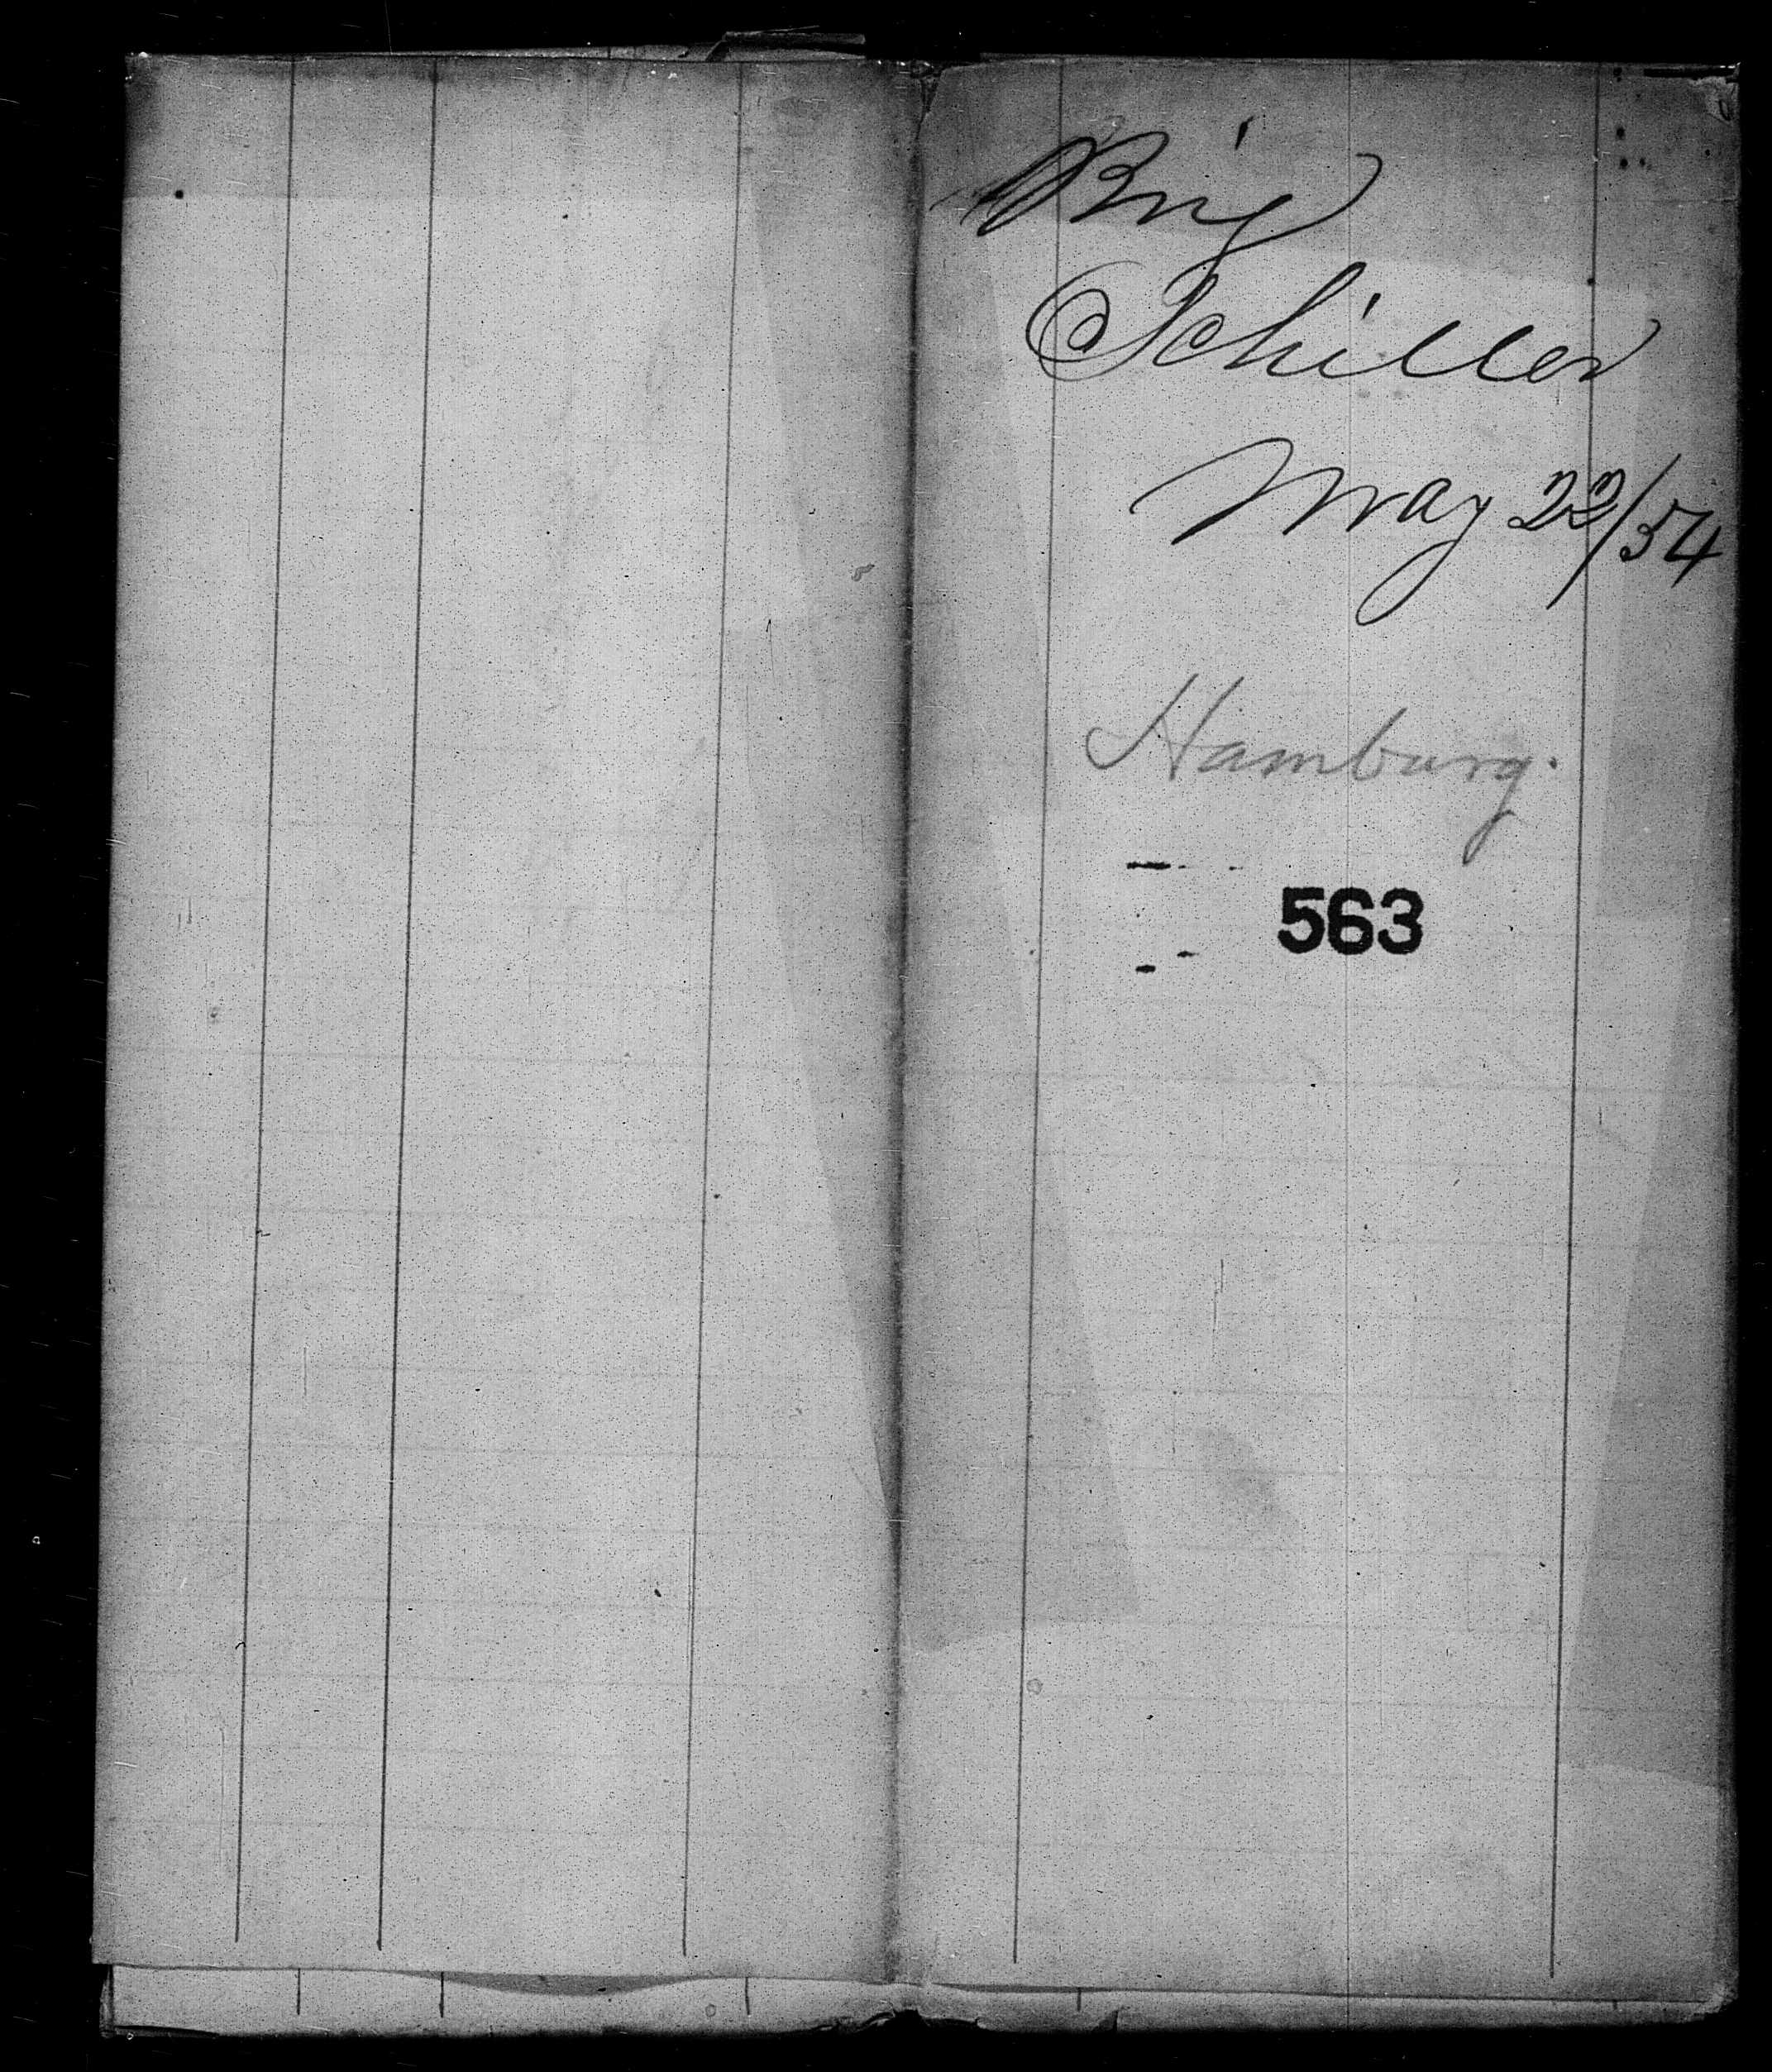 Brig
Schiller
May 22/54
Hamburg.
563